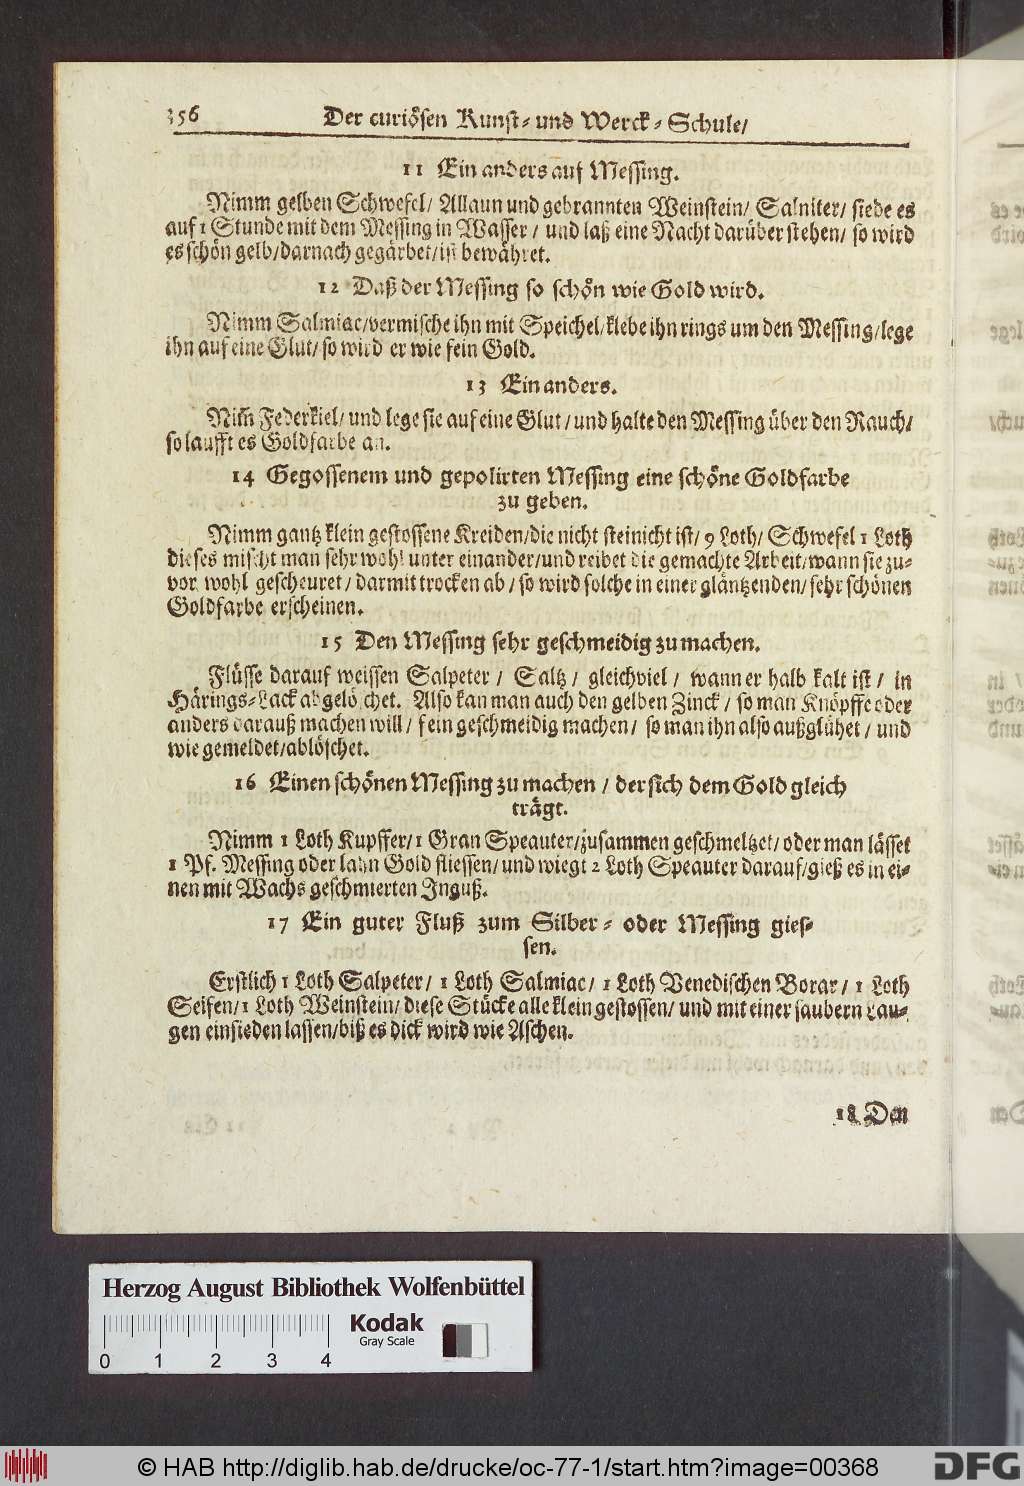 356 Der curiösen Kunst- und Werck-Schule/
11 Ein anders auf Messing.
Nimm gelben Schwefel/ Allaun und gebrannten Weinstein/ Salniter/ siede es
auf 1 Stunde mit dem Messing in Wasser / und laß eine Nacht darüber stehen/ so wird
es schön gelb/ darnach gegärbet/ ist bewähret.
12 Daß der Messing so schön wie Gold wird.
Nimm Salmiac/ vermische ihn mit Speichel/ klebe ihn rings um den Messing/ lege
ihn auf eine Glut/ so wird er wie fein Gold.
13 Ein anders.
Nim̃ Federkiel/ und lege sie auf eine Glut / und halte den Messing über den Rauch/
so laufft es Goldfarbe an.
14 Gegossenem und gepolirten Messing eine schöne Goldfarbe
zu geben.
Nimm gantz klein gestossene Kreiden/ die nicht steinicht ist/ 9 Loth/ Schwefel 1 Loth
dieses mischt man sehr wohl unter einander/ und reibet die gemachte Arbeit/ wann sie zu-
vor wohl gescheuret / darmit trocken ab / so wird solche in einer gläntzenden/ sehr schönen
Goldfarbe erscheinen.
15 Den Messing sehr geschmeidig zu machen.
Flüsse darauf weissen Salpeter / Saltz / gleichviel / wann er halb kalt ist / in
Härings-Lack abgelöschet. Also kan man auch den gelben Zinck / so man Knöpffe oder
anders darauß machen will / fein geschmeidig machen / so man ihn also außglühet / und
wie gemeldet/ ablöschet.
16 Einen schönen Messing zu machen / der sich dem Gold gleich
trägt.
Nimm 1 Loth Kupffer/ 1 Gran Speauter/ zusammen geschmeltzet/ oder man lässet
1 Pf. Messing oder lahn Gold fliessen/ und wiegt 2 Loth Speauter darauf/ gieß es in ei-
nen mit Wachs geschmierten Inguß.
17 Ein guter Fluß zum Silber- oder Messing gies-
sen.
Erstlich 1 Loth Salpeter/ 1 Loth Salmiac/ 1 Loth Venedischen Borax/ 1 Loth
Seifen/ 1 Loth Weinstein/ diese Stücke alle klein gestossen/ und mit einer saubern Lau-
gen einsieden lassen/ biß es dick wird wie Aschen.
18 Den
Herzog August Bibliothek Wolfenbüttel
Kodak
Gray Scale
0 1 2 3 4
© HAB http://diglib.hab.de/drucke/oc-77-1/start.htm?image=00368
DFG